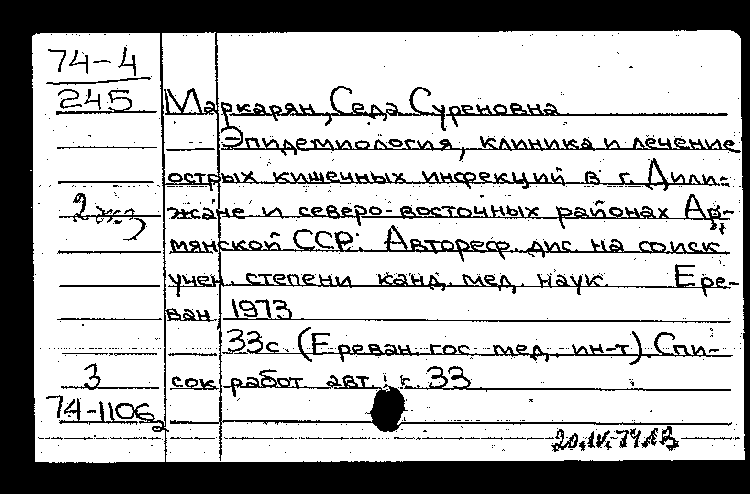 74-4
245
Маркарян, Седа Суреновна
Эпидемиология, клиника и лечение
острых кишечных инфекций в г. Дили-
2 экз
жане и северо-восточных районах Ар-
мянской ССР: Автореф. дис. на соиск
учен. степени канд. мед. наук. Ере-
ван, 1973.
33с. (Ереван. гос. мед. ин-т). Спи-
3
сок работ авт.: с. 33
74-11062
20.IV.74